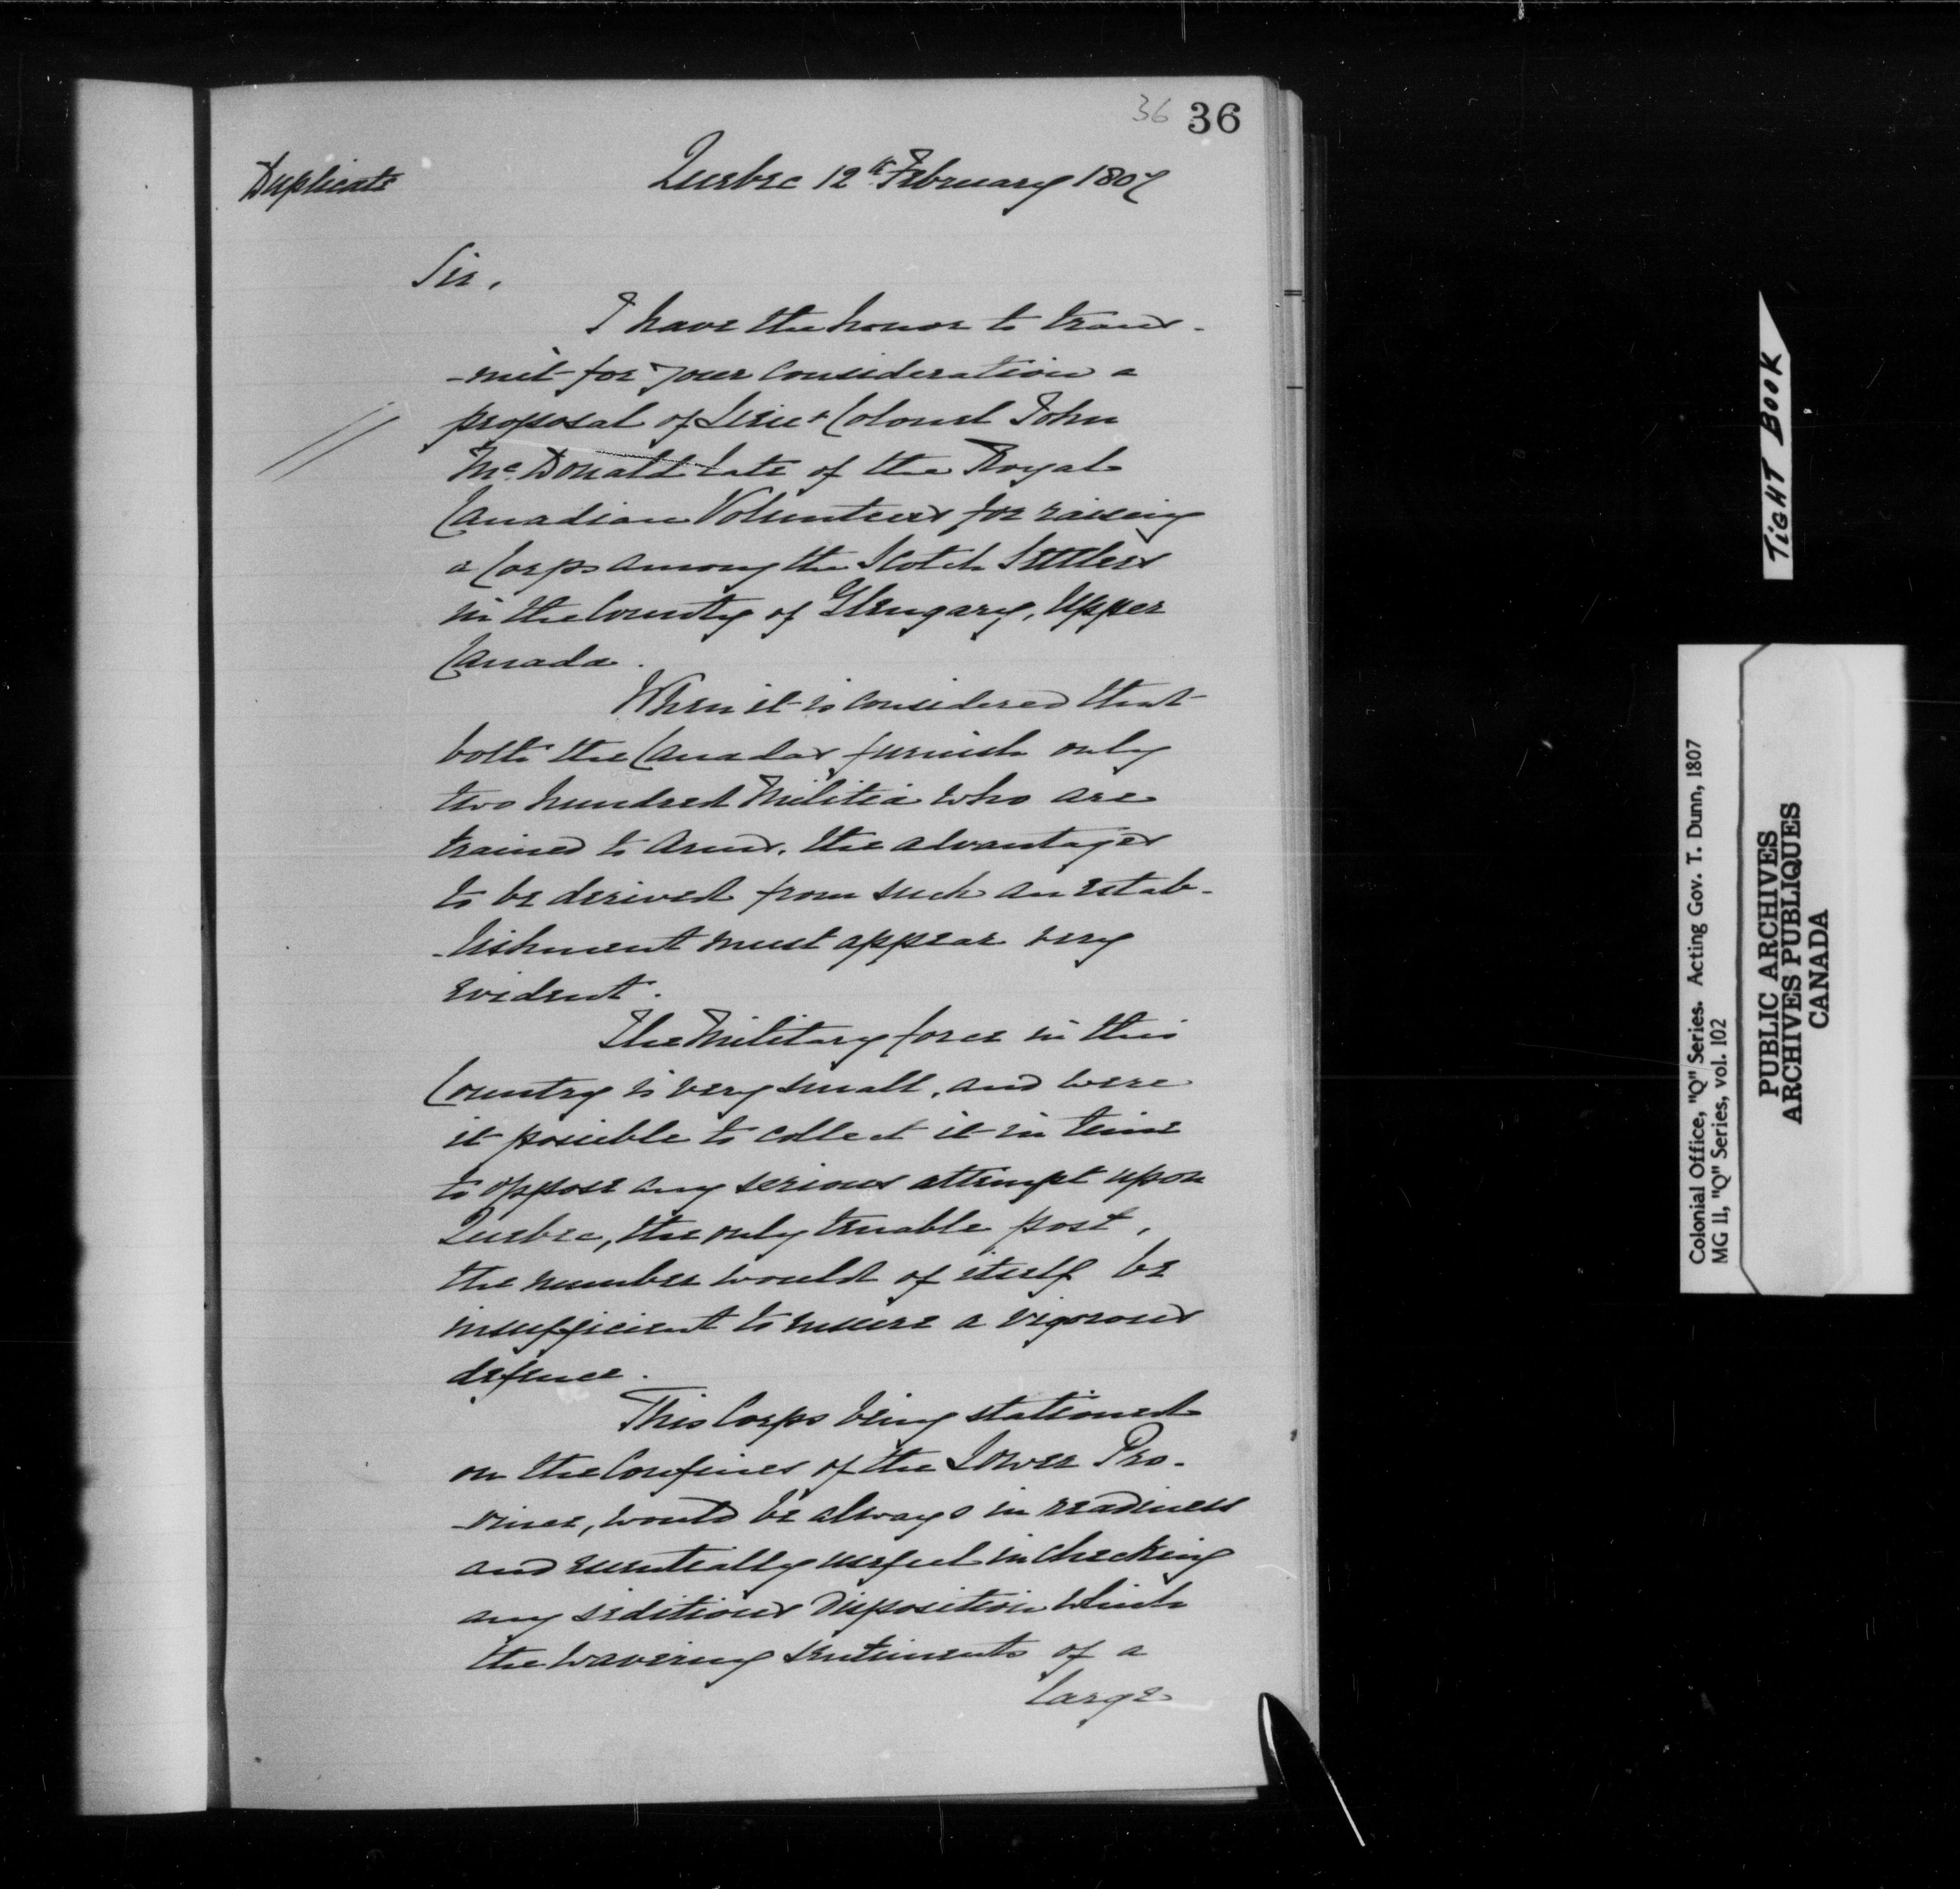 36 36
Duplicate
Quebec 12th February 1807
Sir,
I have the honor to trans-
-mit for your consideration a
proposal of Lieut Colonel John
McDonald late of the Royal
Canadian Volunteers for raising
a Corps among the Scotch Settlers
in the County of Glengary, Upper
Canada.
When it is considered that
both the Canadas furnish only
two hundred Militia who are
trained to Arms, the advantages
to be derived from such an estab-
-lishment must appear very
evident.
The Military force in this
Country is very small, and were
it possible to collect it in time
to oppose any serious attempt upon
Quebec, the only tenable post,
the number would of itself be
insufficient to insure a vigorous
defence.
This Corps being stationed
on the Confines of the Lower Pro-
-vince, would be always in readiness
and essentially useful in checking
any seditious disposition which
the wavering sentiments of a
large
TiGHT BOOK
Colonial Office, "Q" Series. Acting Gov. T. Dunn, 1807
MG 11, "Q" Series, vol. 102
PUBLIC ARCHIVES
ARCHIVES PUBLIQUES
CANADA